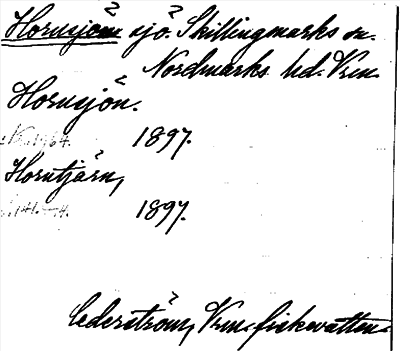 Hornsjön sjö. Skillingmarks sn.
Nordmarks hd. Vrm.
Hornsjön.
1897.
Horntjärn,
1897.
Cederström, Vrm. fiskevatten.